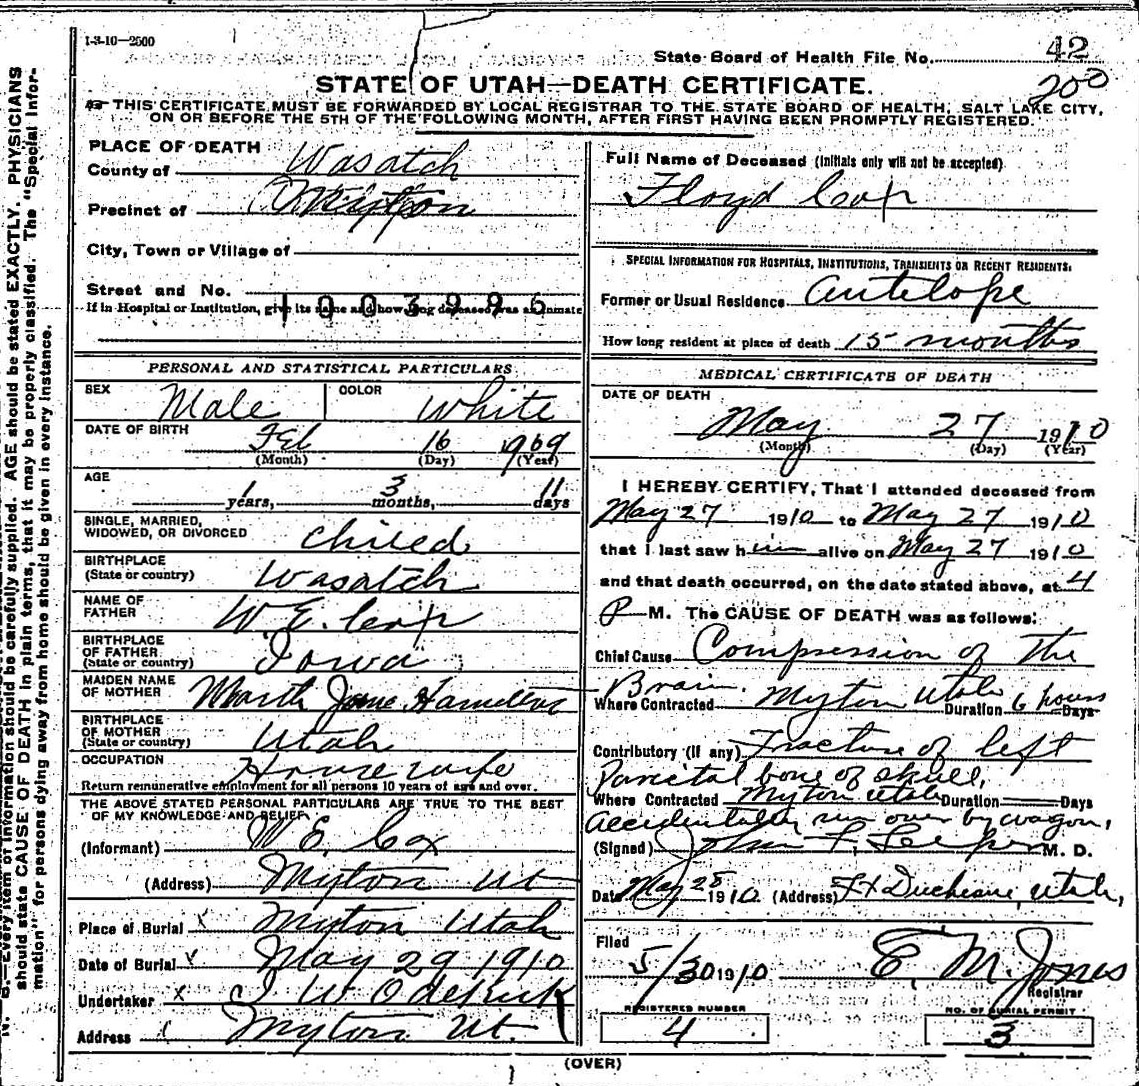 1-3-10—2500
State Board of Health File No. 42
200
STATE OF UTAH—DEATH CERTIFICATE.
THIS CERTIFICATE MUST BE FORWARDED BY LOCAL REGISTRAR TO THE STATE BOARD OF HEALTH, SALT LAKE CITY,
ON OR BEFORE THE 5TH OF THE FOLLOWING MONTH, AFTER FIRST HAVING BEEN PROMPTLY REGISTERED.
PLACE OF DEATH
County of Wasatch
Precinct of Myton
City, Town or Village of
Street and No.
If in Hospital or Institution, give its name and how long deceased was an inmate
1003996
PERSONAL AND STATISTICAL PARTICULARS
SEX Male COLOR White
DATE OF BIRTH Feb 16 1909
(Month) (Day) (Year)
AGE
1 years, 3 months, 11 days
SINGLE, MARRIED,
WIDOWED, OR DIVORCED chiled
BIRTHPLACE
(State or country) Wasatch
NAME OF
FATHER W E. Cox
BIRTHPLACE
OF FATHER
(State or country) Iowa
MAIDEN NAME
OF MOTHER Marth Jane
BIRTHPLACE
OF MOTHER
(State or country) Utah
OCCUPATION House wife
Return remunerative employment for all persons 10 years of age and over.
THE ABOVE STATED PERSONAL PARTICULARS ARE TRUE TO THE BEST
OF MY KNOWLEDGE AND BELIEF
(Informant) W E. Cox
(Address) Myton Ut
Place of Burial x Myton Utah
Date of Burial May 29 1910
Undertaker x
Address Myton Ut.
Full Name of Deceased (Initials only will not be accepted)
Floyd Cox
SPECIAL INFORMATION FOR HOSPITALS, INSTITUTIONS, TRANSIENTS OR RECENT RESIDENTS:
Former or Usual Residence Antelope
How long resident at place of death 15 months
MEDICAL CERTIFICATE OF DEATH
DATE OF DEATH
May 27 1910
(Month) (Day) (Year)
I HEREBY CERTIFY, That I attended deceased from
May 27 1910 to May 27 1910
that I last saw him alive on May 27 1910
and that death occurred, on the date stated above, at 4
P M. The CAUSE OF DEATH was as follows:
Chief Cause Compression of the
Brain.
Where Contracted Myton Utah Duration 6 hours Days
Contributory (if any) Fracture of left
Parietal bone of skull,
Where Contracted Myton Utah Duration Days
Accidentally run over by wagon,
(Signed) John F. M. D.
Date May 28 1910 (Address) Ft Duchesne, Utah,
Filed
5/30 1910 E. M. Jones
Registrar
REGISTERED NUMBER
4
NO. OF BURIAL PERMIT
3
(OVER)
N. B.—Every item of information should be carefully supplied. AGE should be stated EXACTLY. PHYSICIANS
should state CAUSE OF DEATH in plain terms, that it may be properly classified. The "Special Infor-
mation" for persons dying away from home should be given in every instance.